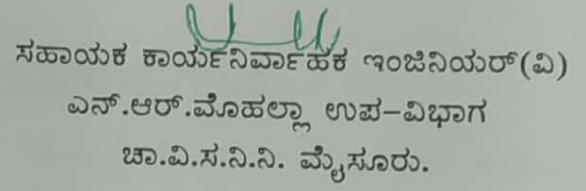 ಸಹಾಯಕ ಕಾರ್ಯನಿರ್ವಾಹಕ ಇಂಜಿನಿಯರ್(ವಿ)
ಎನ್.ಆರ್.ಮೊಹಲ್ಲಾ ಉಪ-ವಿಭಾಗ
ಚಾ.ವಿ.ಸ.ನಿ.ನಿ. ಮೈಸೂರು.